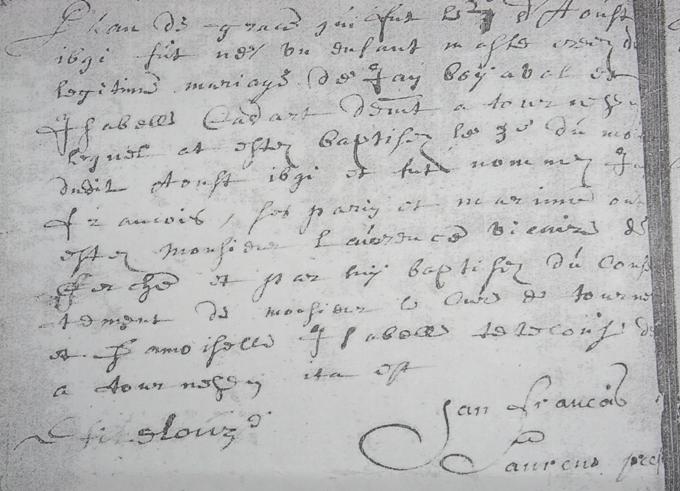 L'an de grace qui fut le 2 d'Aoust
1691 fut nez un enfant masle creez de
legitime mariage de Jan et
Isabelle Cadart demt a tournehen
lequel at estez baptisez le 3e du mo
dudit Aoust 1691 et fut nommez Ja
francois, ses parin et marinne ont
estez Monsieur Laurence vicaire de
et par luy baptisez du cons
tement de monsieur le Cure de tourne
et Damoiselle Isabelle de
a tournehen ita est
Jan francois
Laurens